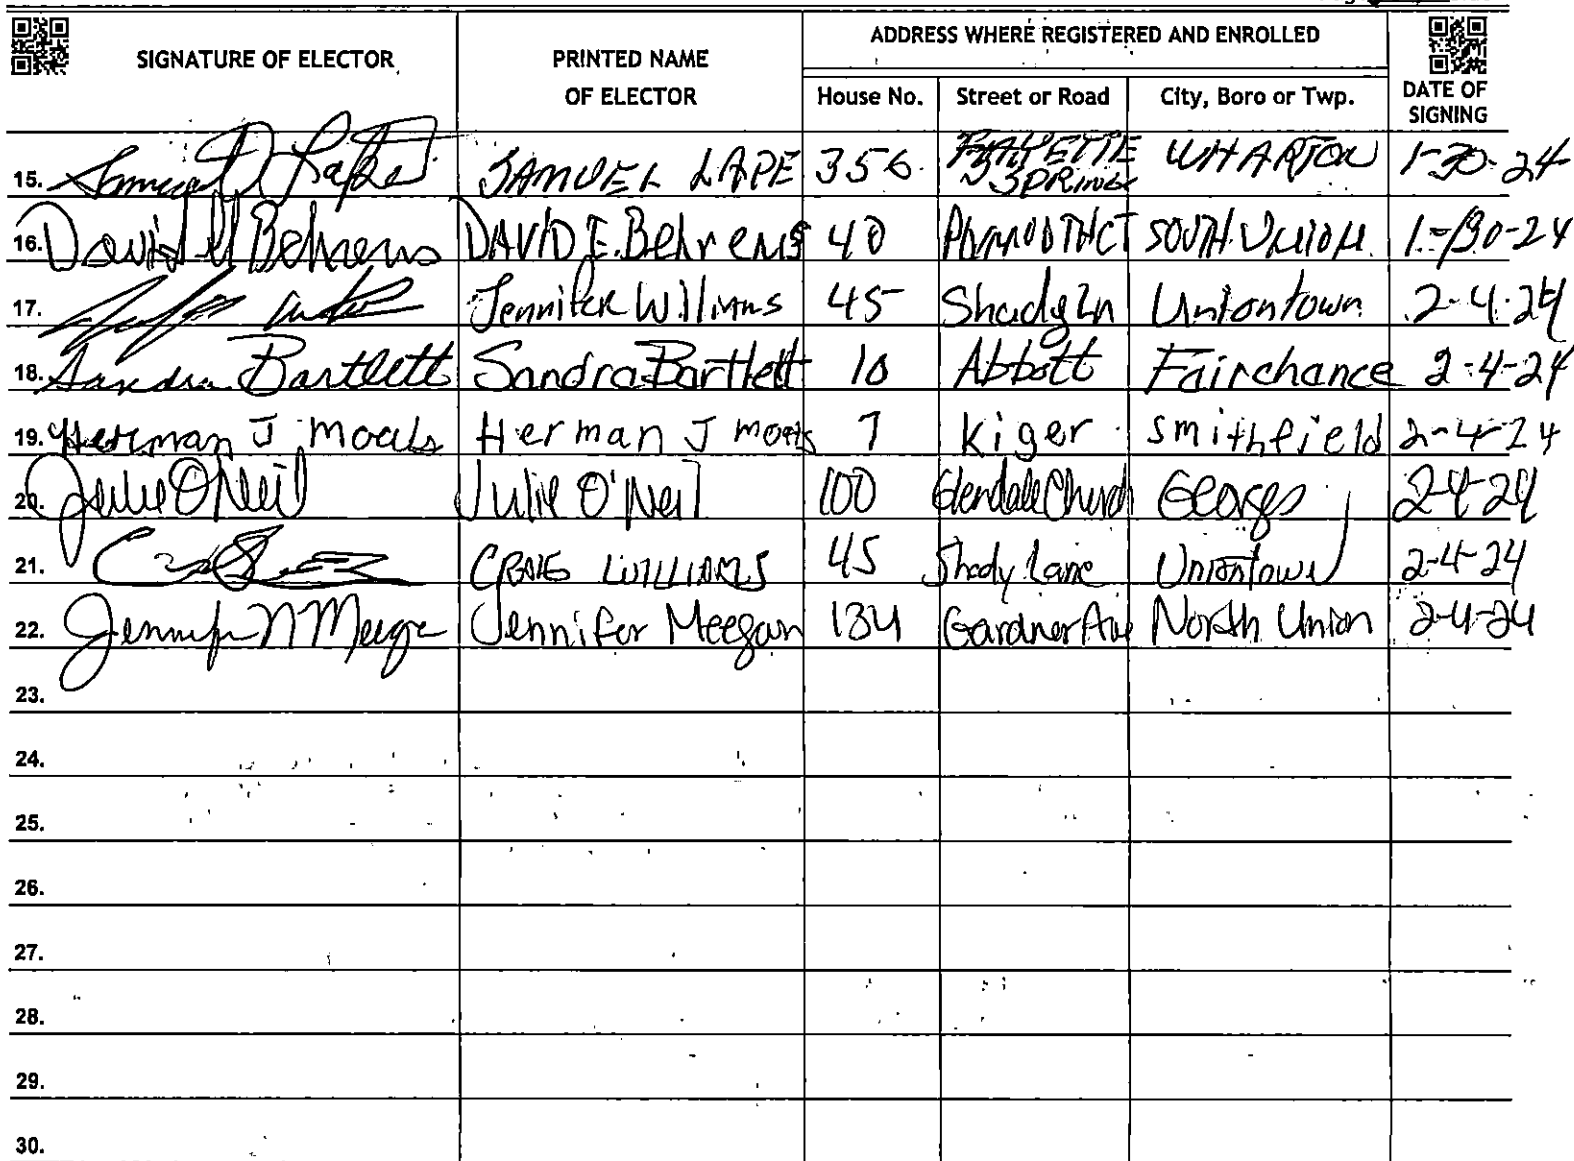 SIGNATURE OF ELECTOR PRINTED NAME OF ELECTOR ADDRESS WHERE REGISTERED AND ENROLLED
House No. Street or Road City, Boro or Twp. DATE OF SIGNING
15. Samuel SAMUEL LAPE 356 FAYETTE SPRINGS WHARTON 1-30-24
16. David Behrens DAVID E. Behrens 40 PLYMOUTH CT SOUTH UNION 1-30-24
17. Jennifer Williams 45 Shady Ln Uniontown 2-4-24
18. Sandra Bartlett Sandra Bartlett 10 Abbott Fairchance 2-4-24
19. Herman J Moats Herman J moats 7 Kiger smithfield 2-4-24
20. Julie O'Neil Julie O'Neil 100 Glendale Church Georges 2-4-24
21. CRAIG WILLIAMS 45 Shady Lane Uniontown 2-4-24
22. Jennifer N Meegan Jennifer Meegan 134 Gardner Ave North Union 2-4-24
23.
24.
25.
26.
27.
28.
29.
30.